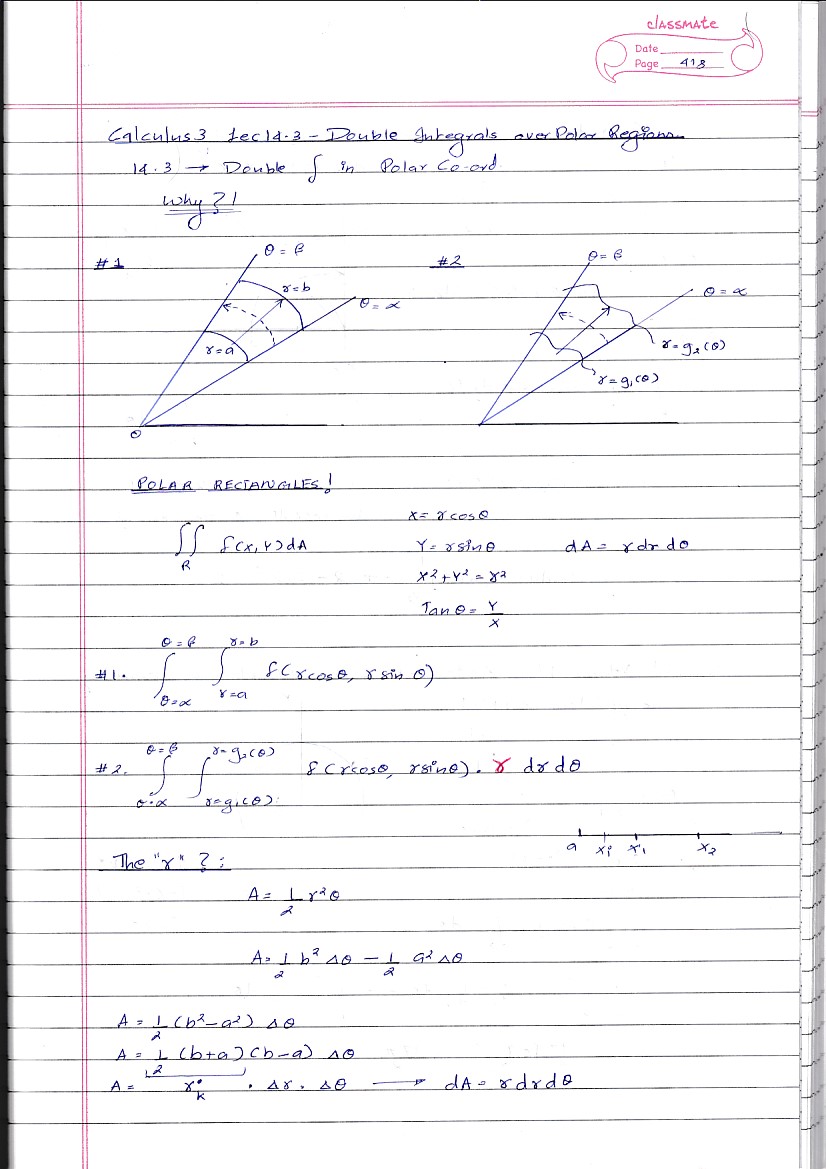 classmate
Date
Page 418
Calculus 3 Lec 14.3 - Double Integrals over Polar Regions
14.3 → Double ∫ in Polar Co-ord.
Why?!
#1
θ = β
r = b
θ = α
r = a
O
#2
θ = β
θ = α
r = g₂(θ)
r = g₁(θ)
POLAR RECTANGLES!
∬_R f(x, y) dA
x = r cos θ
y = r sin θ
dA = r dr dθ
x² + y² = r²
Tan θ = y/x
#1. ∫_{θ=α}^{θ=β} ∫_{r=a}^{r=b} f(r cos θ, r sin θ)
#2. ∫_{θ=α}^{θ=β} ∫_{r=g₁(θ)}^{r=g₂(θ)} f(r cos θ, r sin θ) · r dr dθ
a x₁* x₁ x₂
The "r"?:
A = 1/2 r² θ
A = 1/2 b² Δθ - 1/2 a² Δθ
A = 1/2 (b² - a²) Δθ
A = 1/2 (b+a)(b-a) Δθ
A = r*_k · Δr · Δθ → dA = r dr dθ